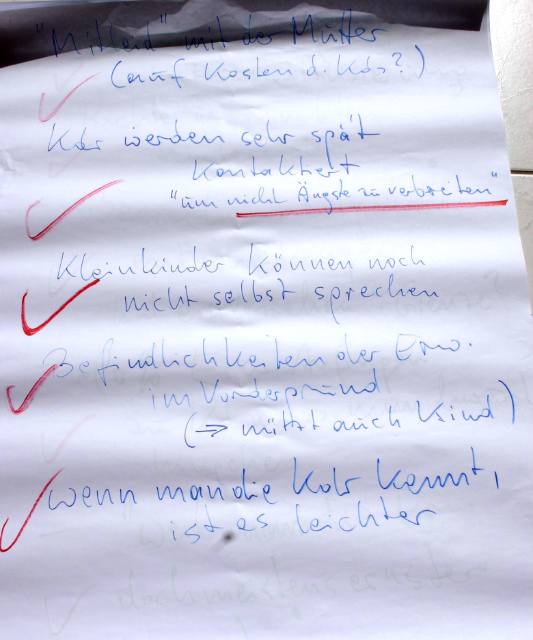 "Mitleid" mit der Mutter
(auf Kosten d. Kdr?)
Kdr werden sehr spät
kontaktiert
"um nicht Ängste zu verbreiten"
Kleinkinder können noch
nicht selbst sprechen
Befindlichkeiten der Erw.
im Vordergrund
(⇒ nützt auch Kind)
wenn man die Kdr kennt,
ist es leichter